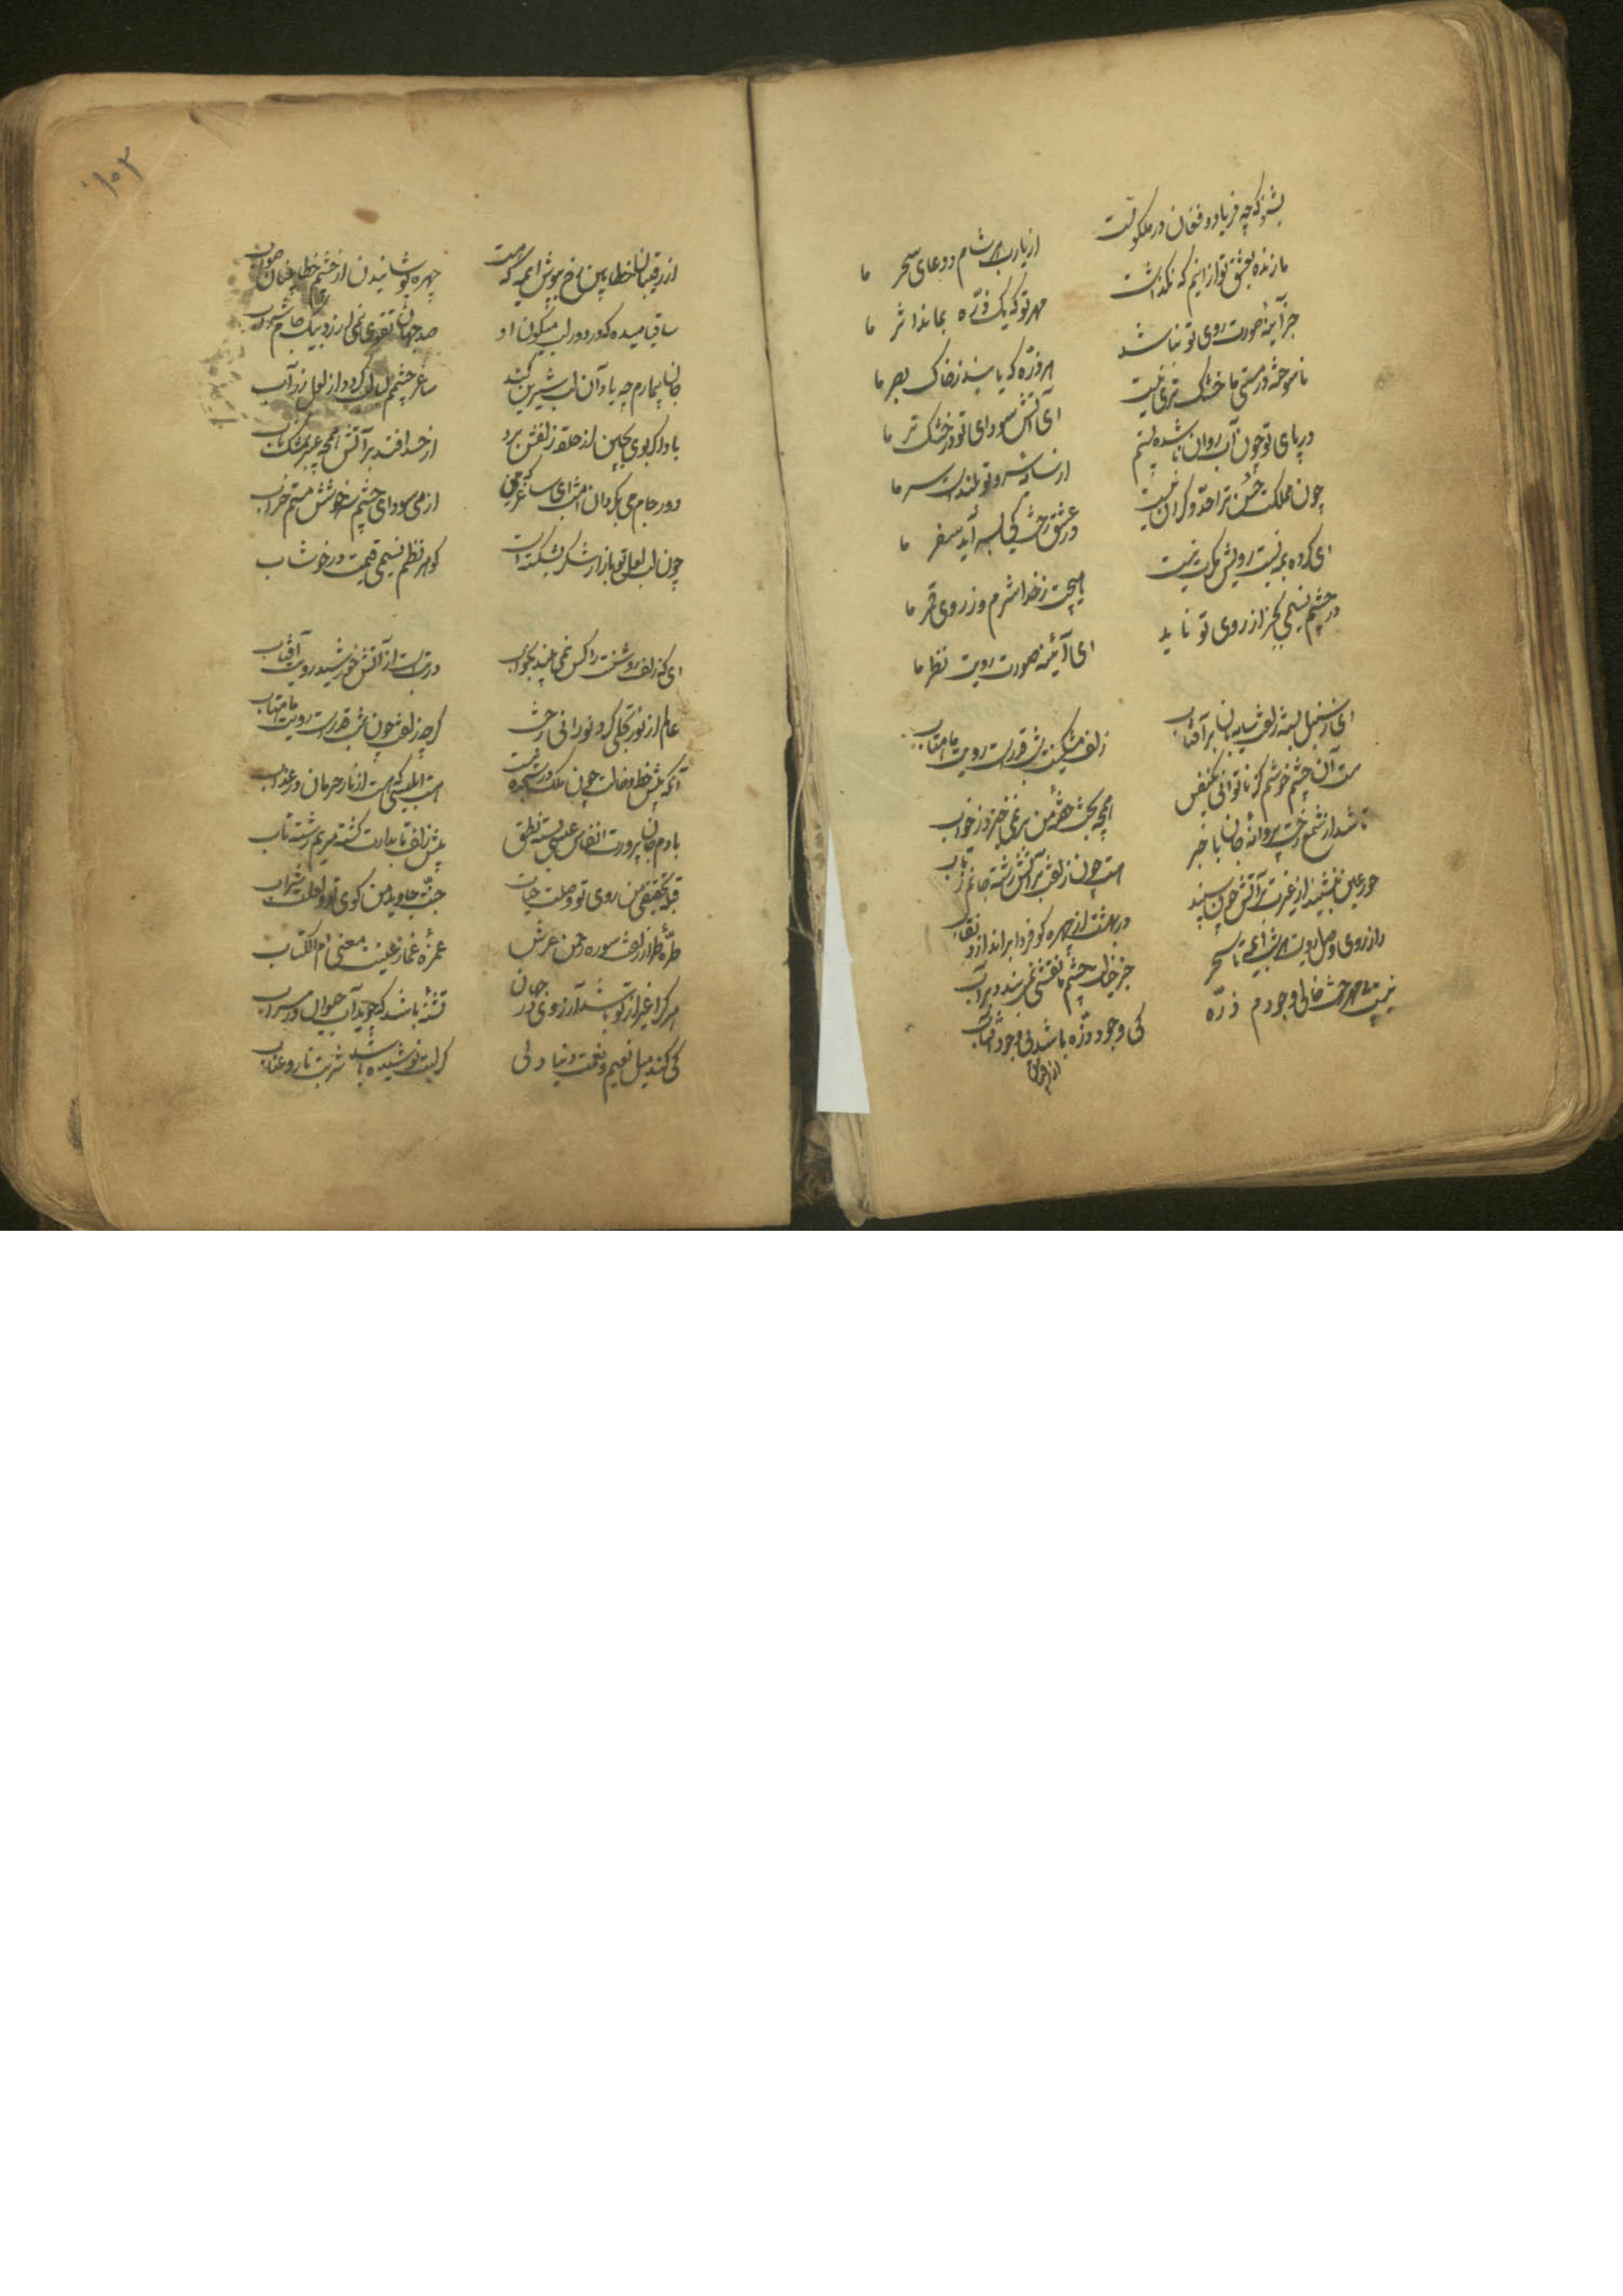 بشنو که چه فریاد و فغان در ملکوتست    از یارب هر شام و دعای سحر ما
ما زنده بعشق تو ازانیم که نگذاشت    مهر تو که یک ذره بماند اثر ما
جز آینهٔ صورت روی تو نباشد    هر ذره که یابند ز خاک بصر ما
تا سوخته در هستی ما خشک و تری نیست    ای آتش سودای تو در خشک و تر ما
در پای تو چون آب روان تا شده پستیم    از سایهٔ سرو تو بلند است سر ما
چون مملکت حسن ترا حد و کران نیست    در عشق رخت کی بسر آید سفر ما
ای کرده بمه نسبت رویش مگرت نیست    هیچت ز خدا شرم و ز روی قمر ما
در چشم نسیمی بجز از روی تو ناید    ای آئینه صورت رویت نظر ما
ای ز سنبل بسته زلفت سایه‌بان بر آفتاب    زلف مشکینت شب قدرست و رویت ماهتاب
مست آن چشم خوشم کز ناتوانی یکنفس    همچو بخت خفتهٔ من بر نمی‌خیزد ز خواب
تا شد از شمع رخت پروانهٔ جان با خبر    هست چون زلفت بر آتش رشته جانم ز تاب
حور عین بنشیند از غیرت بر آتش چون سپند    در بهشت از چهره گو فردا براندازد نقاب
نیست بی مهر رخت خالی وجودم ذرّه    کی وجود ذرّه باشد بی وجود آفتاب
جز خیالت چشم ما نقشی نمی‌بندد بر آب
از رقیبان خطابین رخ بپوش ای مه که هست    چهره پوشانیدن از چشم خطابینان صواب
ساقیا می ده که در دور لب میگون او    صد جهان تقوی نمی‌ارزد بیک جام شراب
جان بیمارم چو یاد آن لب شیرین کند    ساغر چشمم لبالب گردد از لعل مذاب
باد اگر بوی بچین از حلقهٔ زلفش برد    از حسد افتد بر آتش همچو عنبر مشک ناب
دور جام می بگردان امشب ای ساقی    از می سودای چشم سرخوشش مستم خراب
چون لب لعل تو بازار شکر بشکسته است    گوهر نظم نسیمی قیمت در خوشاب
ای که زلف روشنت را کس نمی‌بیند بخواب    در تب است از آتش خورشید رویت آفتاب
عالم از نور تجلی کرد نورانی رخت    گرچه زلفت چون شب قدرست و رویت ماهتاب
آنکه پیش خط و خالت چون ملک در سجده نیست    هست ابلیسی که هست از نار حرمان در عذاب
با دم جان‌پرورت انفاس عیسی بسته نطق    پیش زلف تابدارت گشته مریم رشته تاب
قبله تحقیق من روی تو و صلت حیات    جنّت جاوید من کوی تو و لعلت شراب
طرّهٔ طرار زلفت سوره رحمن عرش    غمزهٔ غماز عینت معنی ام الکتاب
هر که را غیر از تو باشد آرزوی در جهان    تشنه باشد که جوید آب حیوان در سراب
کی کند میل نعیم و نعمت دنیا دلی    کز لبت نوشیده باشد شربت نار و عناب
۱۰۲